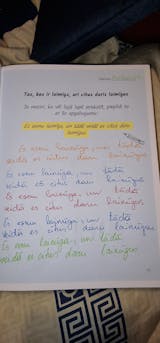 Tas, kas ir laimīgs, arī citus darīs laimīgus
Ja mazini, ka vēl šajā lapā pietrūkst, papildi to
ar šo apgalvojumu:
Es esmu laimīga, un tādā veidā es citus daru
laimīgus.
Es esmu laimīga, un tādā
veidā es citus daru laimīgus
Es esmu laimīga, un tādā
veidā es citus daru laimīgus
Es esmu laimīga, un tādā
veidā es citus daru laimīgus
Es esmu laimīga, un tādā
veidā es citus daru laimīgus
Es esmu laimīga, un tādā
veidā es citus daru laimīgus